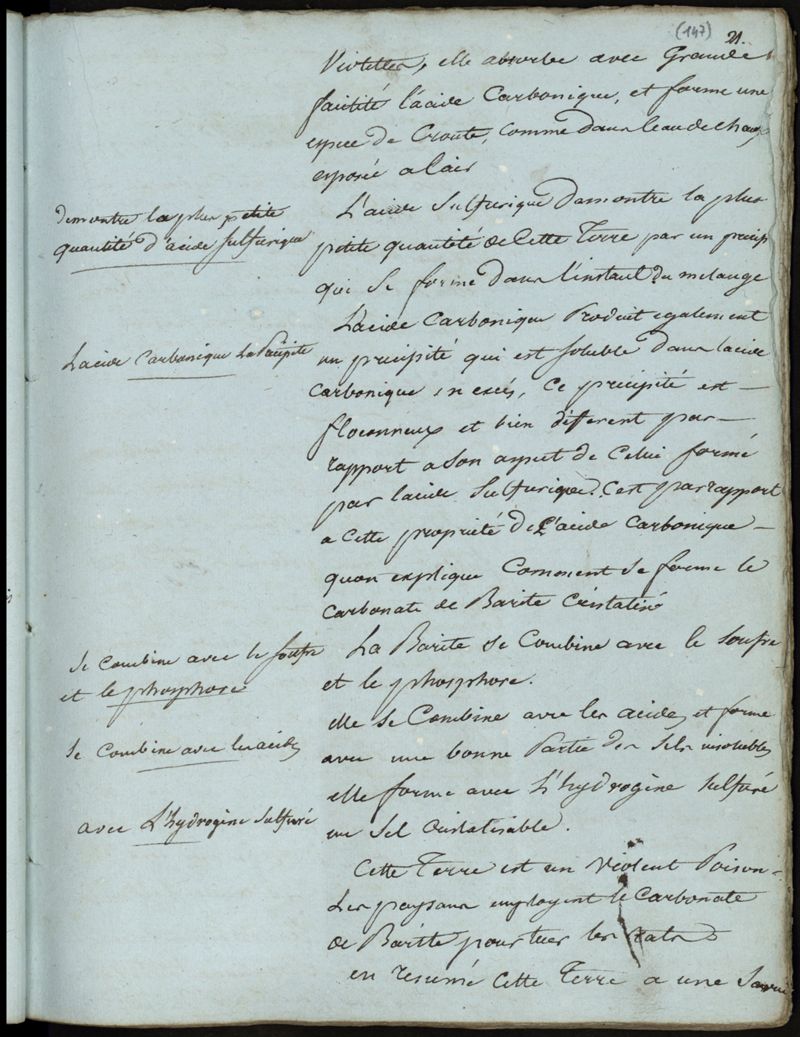 (147) 21.
Violettes, elle absorbe avec Grande
facilité l'acide Carbonique, et forme une
espece de Croute, comme dans l'eau de chaux
exposée a l'air
L'acide Sulfurique Demontre la plus
petite quantité de Cette Terre par un precip
qui Se forme Dans l'instant Du melange
L'acide Carbonique Produit egalement
un precipité qui est Soluble Dans lacide
Carbonique en excés, Ce precipité est —
floconneux et bien different par —
rapport a Son aspect de Celui formé
par lacide Sulfurique. C'est par rapport
a Cette propriété de L'acide Carbonique —
quon explique Comment Se forme le
Carbonate de Barite Cristalisé
La Barite Se Combine avec le Soufre
et le phosphore.
elle Se Combine avec les acides et forme
avec une bonne Partie Des Sels insolubles
elle forme avec L'hydrogène Sulfuré
un Sel Cristalisable.
Cette Terre est un Violent Poison —
Les paysans employent le Carbonate
de Barite pour tuer les rats
en resumé Cette Terre a une Saveur
Demontre la plus petite
quantité d'acide Sulfurique
Lacide Carbonique Le Précipite
Se Combine avec le Soufre
et le phosphore
Se Combine avec les acides
avec L'hydrogène Sulfuré